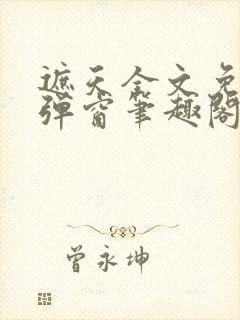 遮天全文免
弹窗笔趣阁
曾永坤